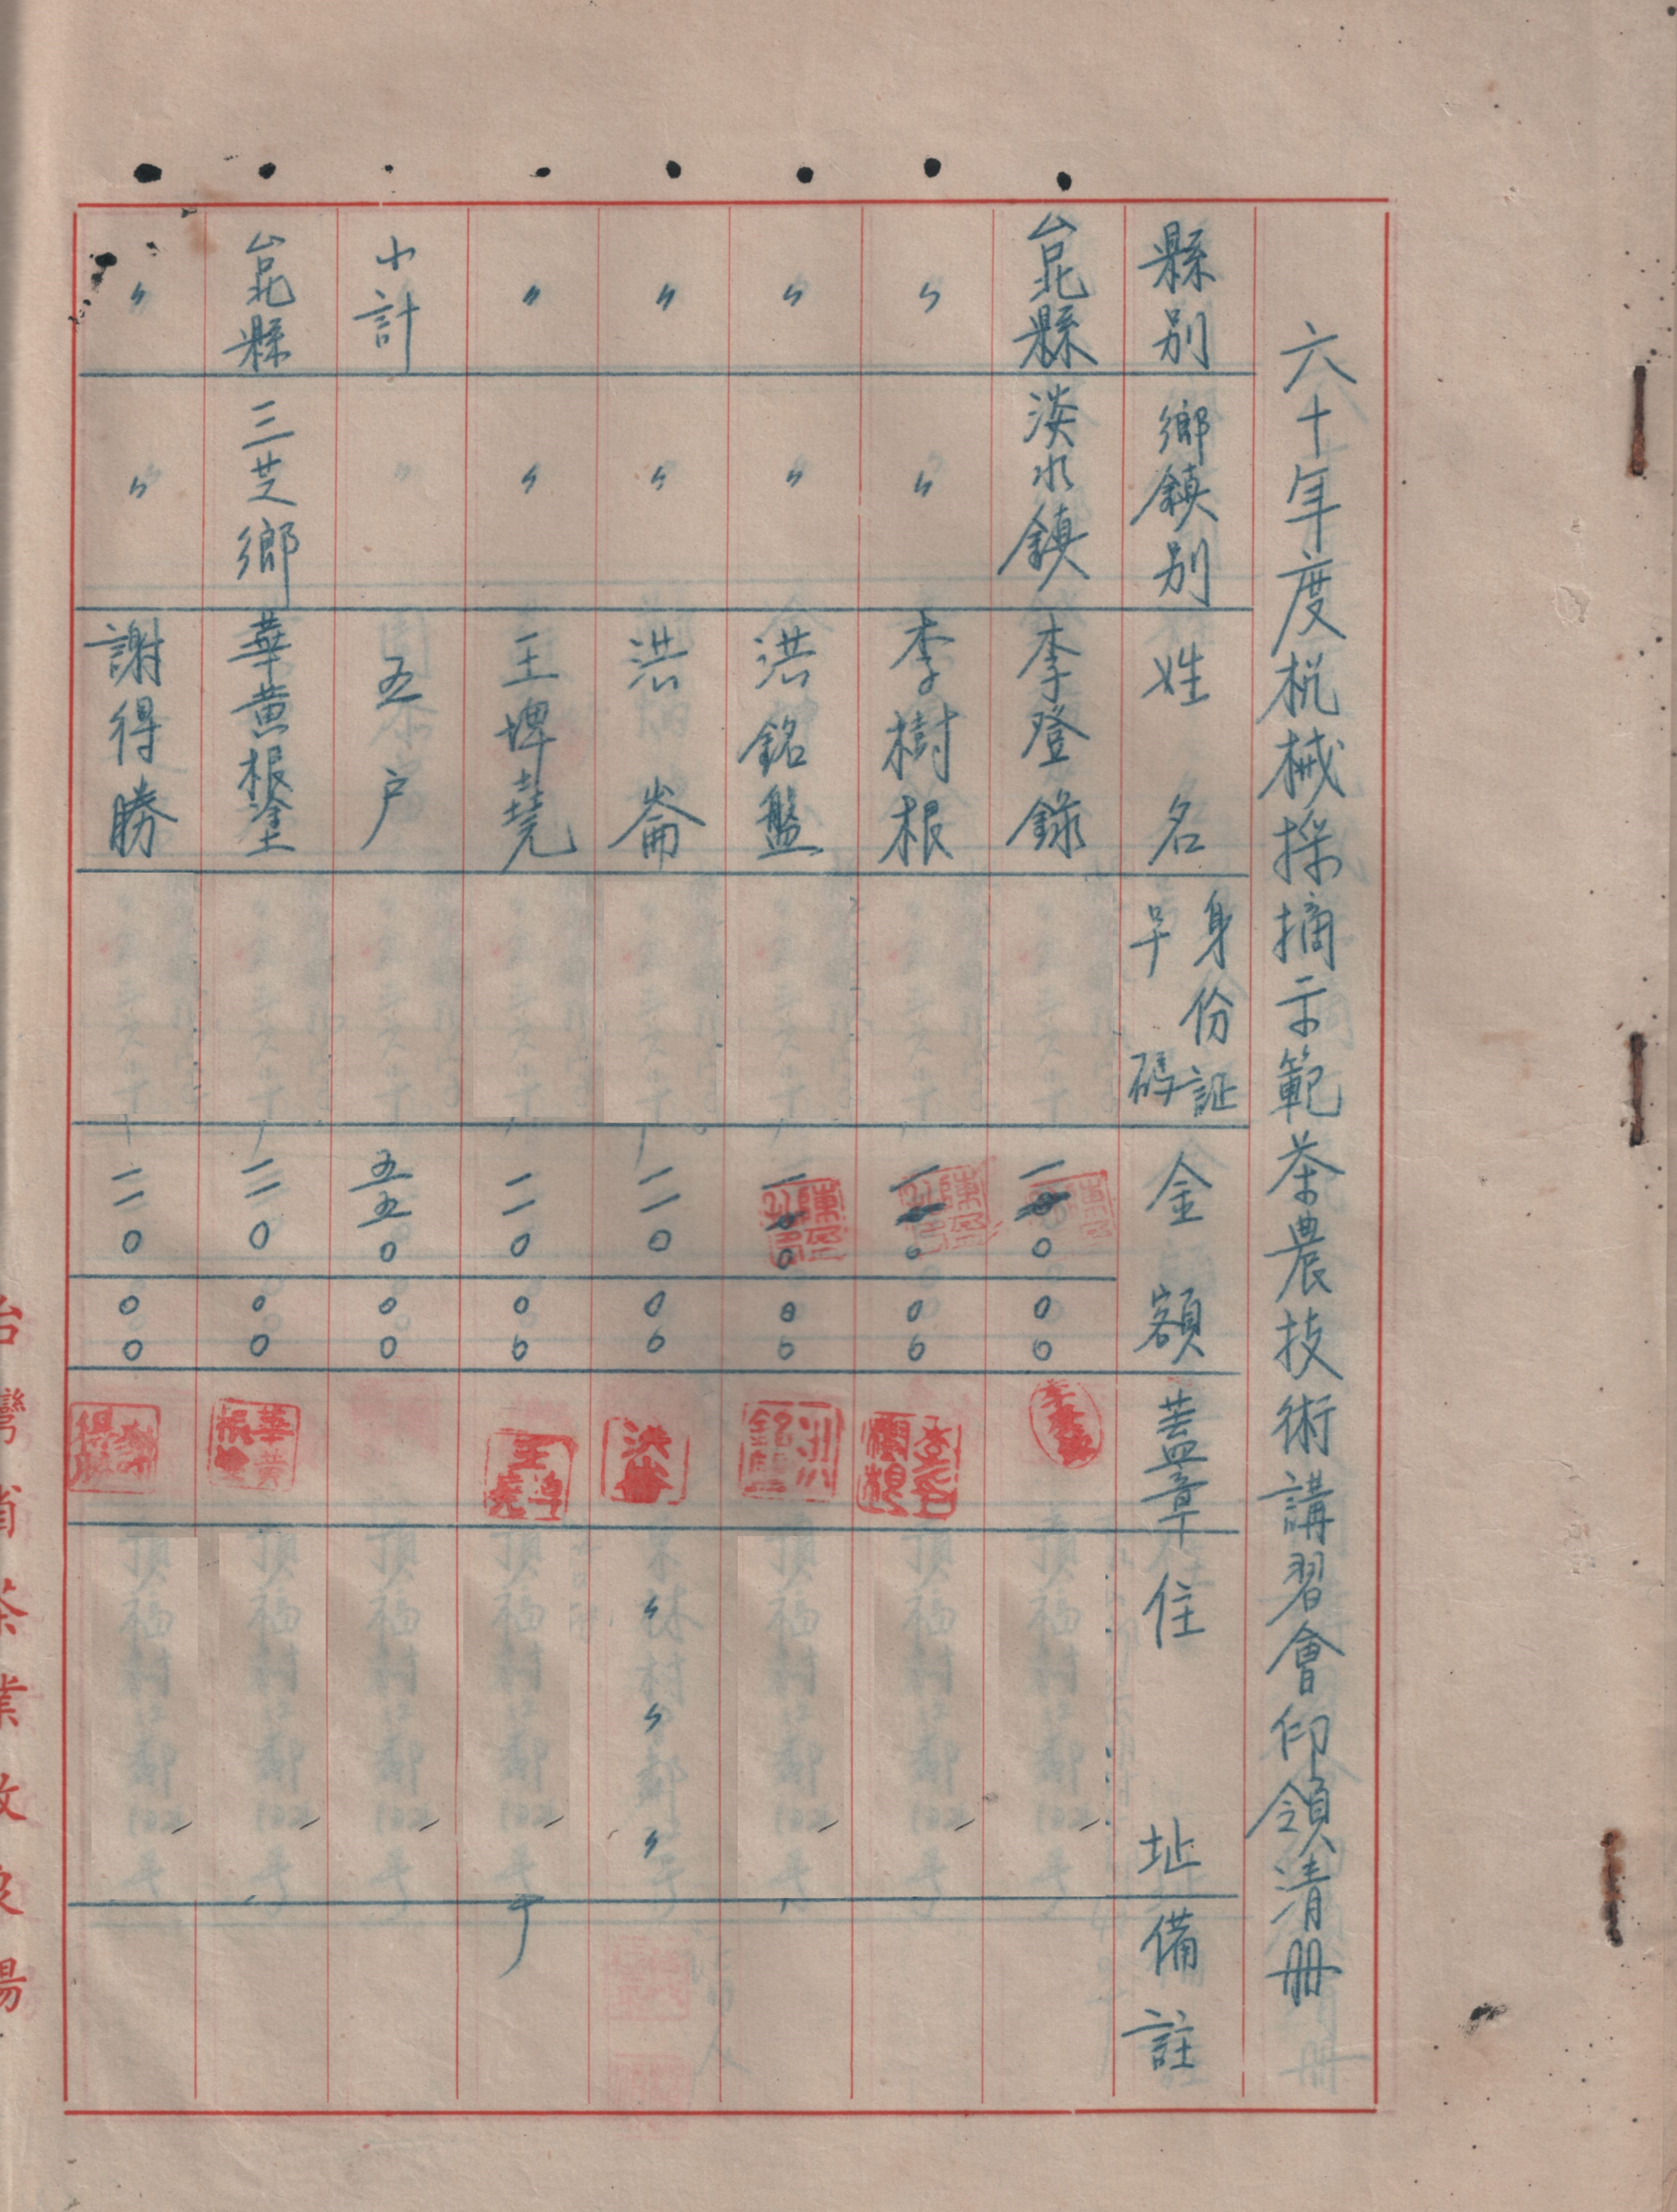 六十年度机械採摘示範茶農技術講習會印領清册
縣別 鄉鎮別 姓名 身份証号碼 金額 蓋章 住址 備註
台北縣 淡水鎮 李登錄 一〇〇〇
〃 〃 李樹根 一〇〇〇
〃 〃 洪銘盤 一〇〇〇
〃 〃 洪崙 二〇〇〇 洪崙 〃 〃 〃
〃 〃 王埤堯 二〇〇〇
小計 五户 五五〇〇〇
台北縣 三芝鄉 華黄根塗 二〇〇〇
〃 〃 謝得勝 二〇〇〇
台灣省茶業改良場